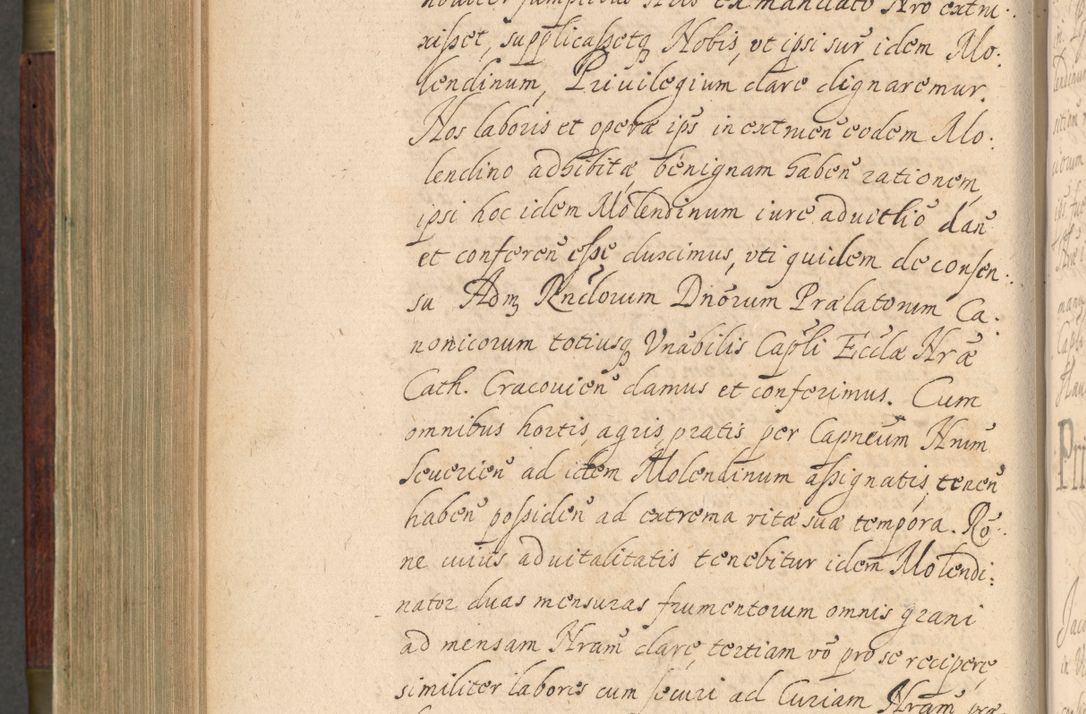 xisset, supplicassetq Nobis, vt ipsi sur idem Mo:
lendinum, Priuilegium dare dignaremur.
Nos laboris et operæ ips in extruen eodem Mo:
lendino adhibitæ benignam haben rationem,
ipsi hoc idem Molendinum iure aduitlio dan
et conferen esse duximus, vti quidem de consen:
su Adm Rndorum Dnorum Prælatorum Ca:
nonicorum totiusq Vnabilis Capli Ecclæ Nræ
Cath. Cracouien damus et conferimus. Cum
omnibus hortis, agris, pratis per Capneum Nrum
Seuerien ad idem Molendinum assignatis, tenen
haben possiden ad extrema vitæ suæ tempora. Ro:
ne cuius aduitalitatis tenebitur idem Molendi:
nator duas mensuras frumentorum omnis grani
ad mensam Nram dare, tertiam vo pro se recipere,
similiter labores cum securi ad Curiam Nram præ